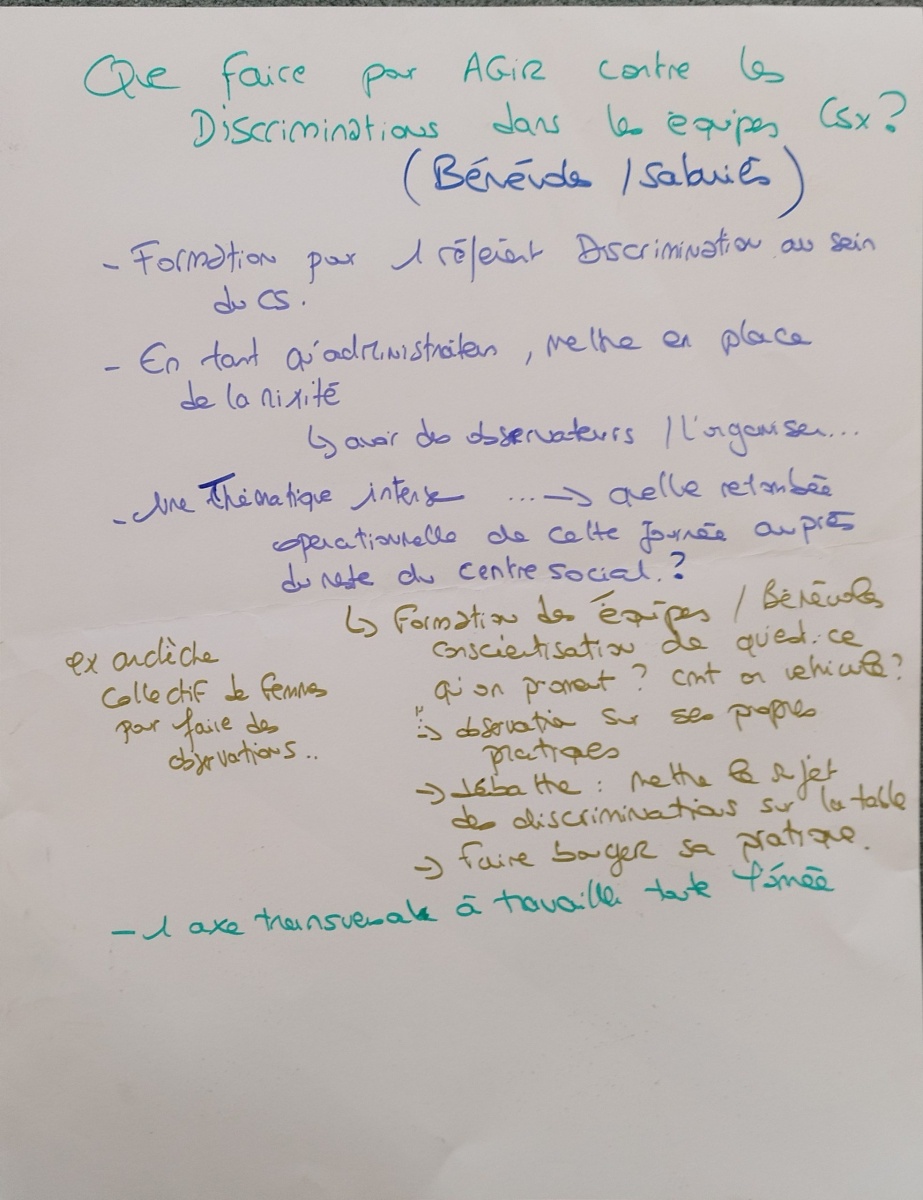 Que faire par AGiR contre les
Discriminations dans les équipes CSX?
(Bénévoles / Salariés)
- Formation par 1 référent Discrimination au sein
du CS.
- En tant qu'administrateur, mettre en place
de la mixité
↳ avoir des observateurs / l'organiser...
- Une Thématique intense ... → quelle retombée
opérationnelle de cette journée auprès
du reste du centre social. ?
↳ Formation des équipes / Bénévoles
conscientisation de qu'est-ce
qu'on promeut ? cmt on véhicule ?
→ observation sur ses propres
pratiques
→ débattre : mettre le sujet
des discriminations sur la table
→ faire bouger sa pratique.
ex ardèche
Collectif de femmes
par faire des
observations..
- 1 axe transversale à travailler toute l'année